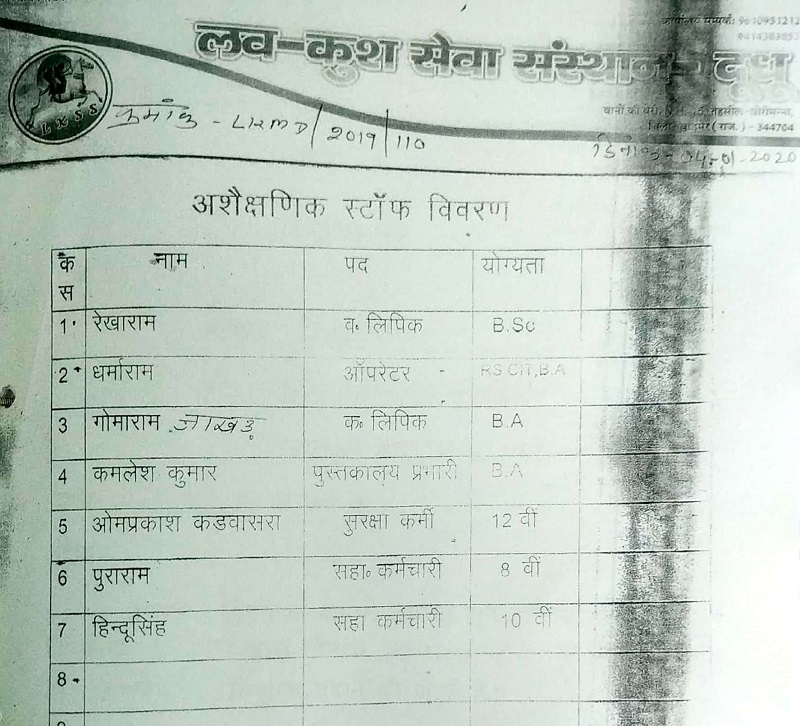 कार्यालय सम्पर्क: 9610951212
9414383052
लव-कुश सेवा संस्थान दूधू
LKSS
क्रमांक - LKMD/2019/110
344704
दिनांक - 04-01-2020
अशैक्षणिक स्टॉफ विवरण
क स नाम पद योग्यता
1 रेखाराम व. लिपिक B.Sc
2 धर्माराम ऑपरेटर RSCIT,B.A
3 गोमाराम जाखड़ क. लिपिक B.A
4 कमलेश कुमार पुस्तकालय प्रभारी B.A
5 ओमप्रकाश कडवासरा सुरक्षा कर्मी 12 वीं
6 पुराराम सहा. कर्मचारी 8 वीं
7 हिन्दूसिंह सहा कर्मचारी 10 वीं
8